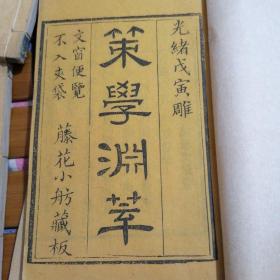 光緒戊寅雕
策學淵萃
文窗便覽
不入夾袋
藤花小舫藏板